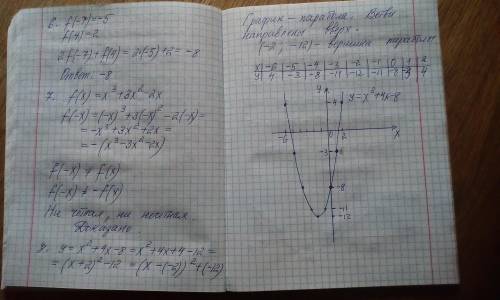 6. f(-7)=-5
f(4)=2
2f(-7)+f(4)=2(-5)+2=-8
Ответ: -8
7. f(x)=x³+3x²-2x
f(-x)=(-x)³+3(-x)²-2(-x)=
=-x³+3x²+2x=
=-(x³-3x²-2x)
f(-x)≠f(x)
f(-x)≠-f(x)
Ни чётная, ни нечётная.
Доказано
y=x²+4x-8=x²+4x+4-12=
=(x+2)²-12=(x-(-2))²+(-12)
График - парабола. Ветви
направлены вверх.
(-2; -12) - вершина параболы
x -6 -5 -4 -3 -2 -1 0 1 2
y 4 -3 -8 -11 -12 -11 -8 -3 4
y
4
y=x²+4x-8
-6
2
x
-3
-8
-11
-12